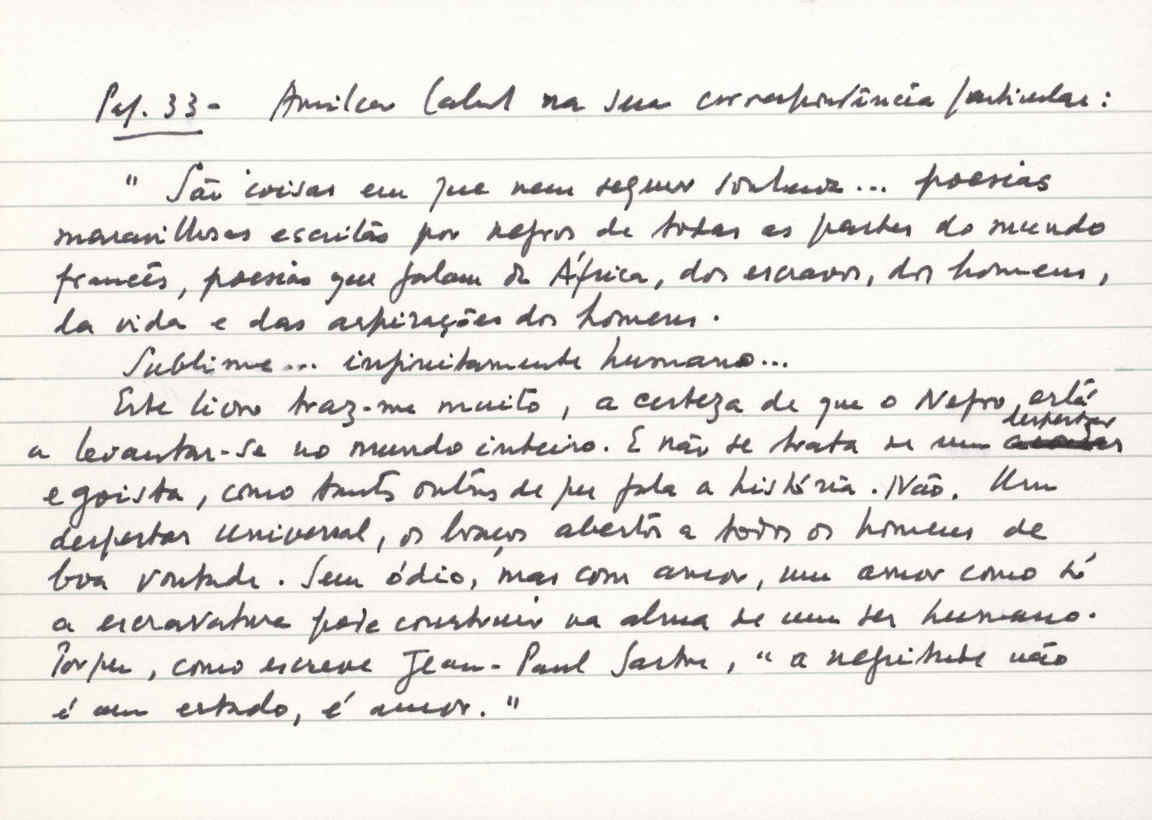 Pag. 33 - Amilcar Cabral na sua correspondância particular:
" São coisas em que nem sequer sonhava... poesias
maravilhosas escritas por negros de todas as partes do mundo
francês, poesias que falam de África, dos escravos, dos homens,
da vida e das aspirações dos homens.
Sublime... infinitamente humano...
Este livro traz-me muito, a certeza de que o Negro está
a levantar-se no mundo inteiro. E não se trata de um despertar
egoista, como tantos outros de que fala a história. Não. Um
despertar universal, os braços abertos a todos os homens de
boa vontade. Sem ódio, mas com amor, um amor como só
a escravatura pode construir na alma de um ser humano.
Porque, como escreve Jean-Paul Sartre, "a negritude não
é um estado, é amor."